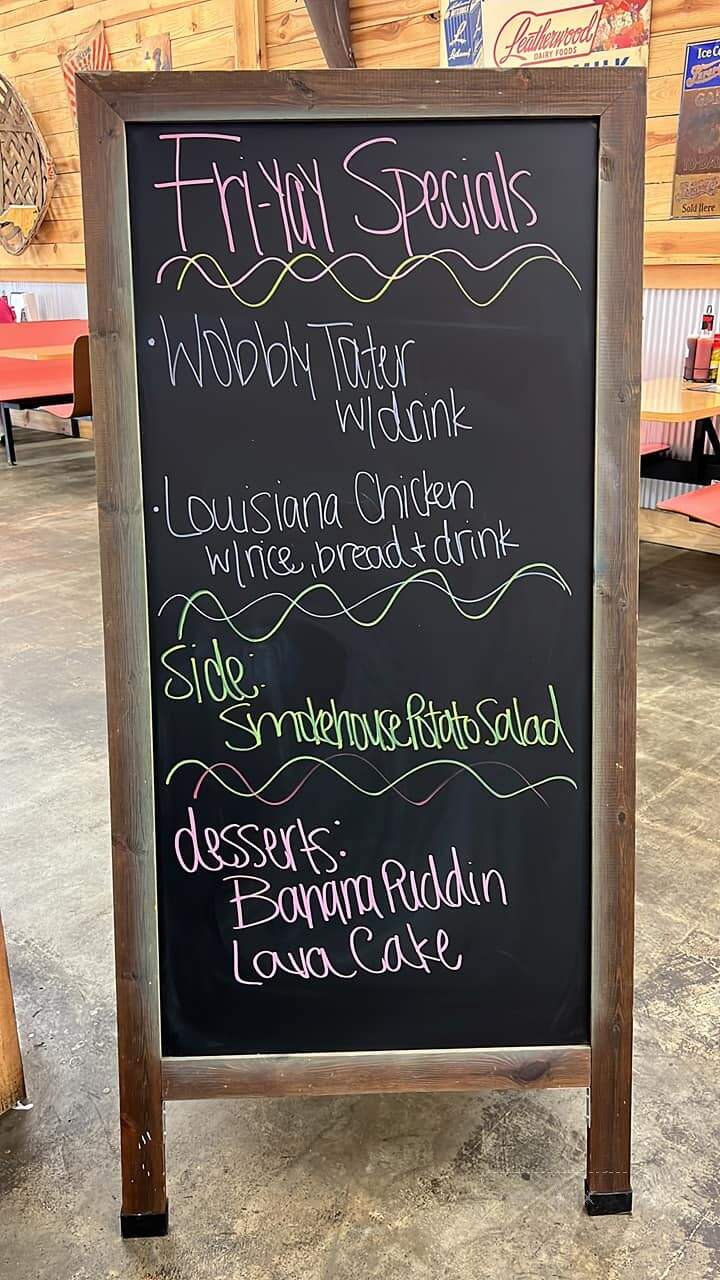 Leatherwood
DAIRY FOODS
MILK
Ice C
Sold Here
Fri-yay Specials
• Wobbly Tater
w/drink
• Louisiana Chicken
w/rice, bread + drink
Side:
Smokehouse Potato Salad
desserts:
Banana Puddin
Lava Cake